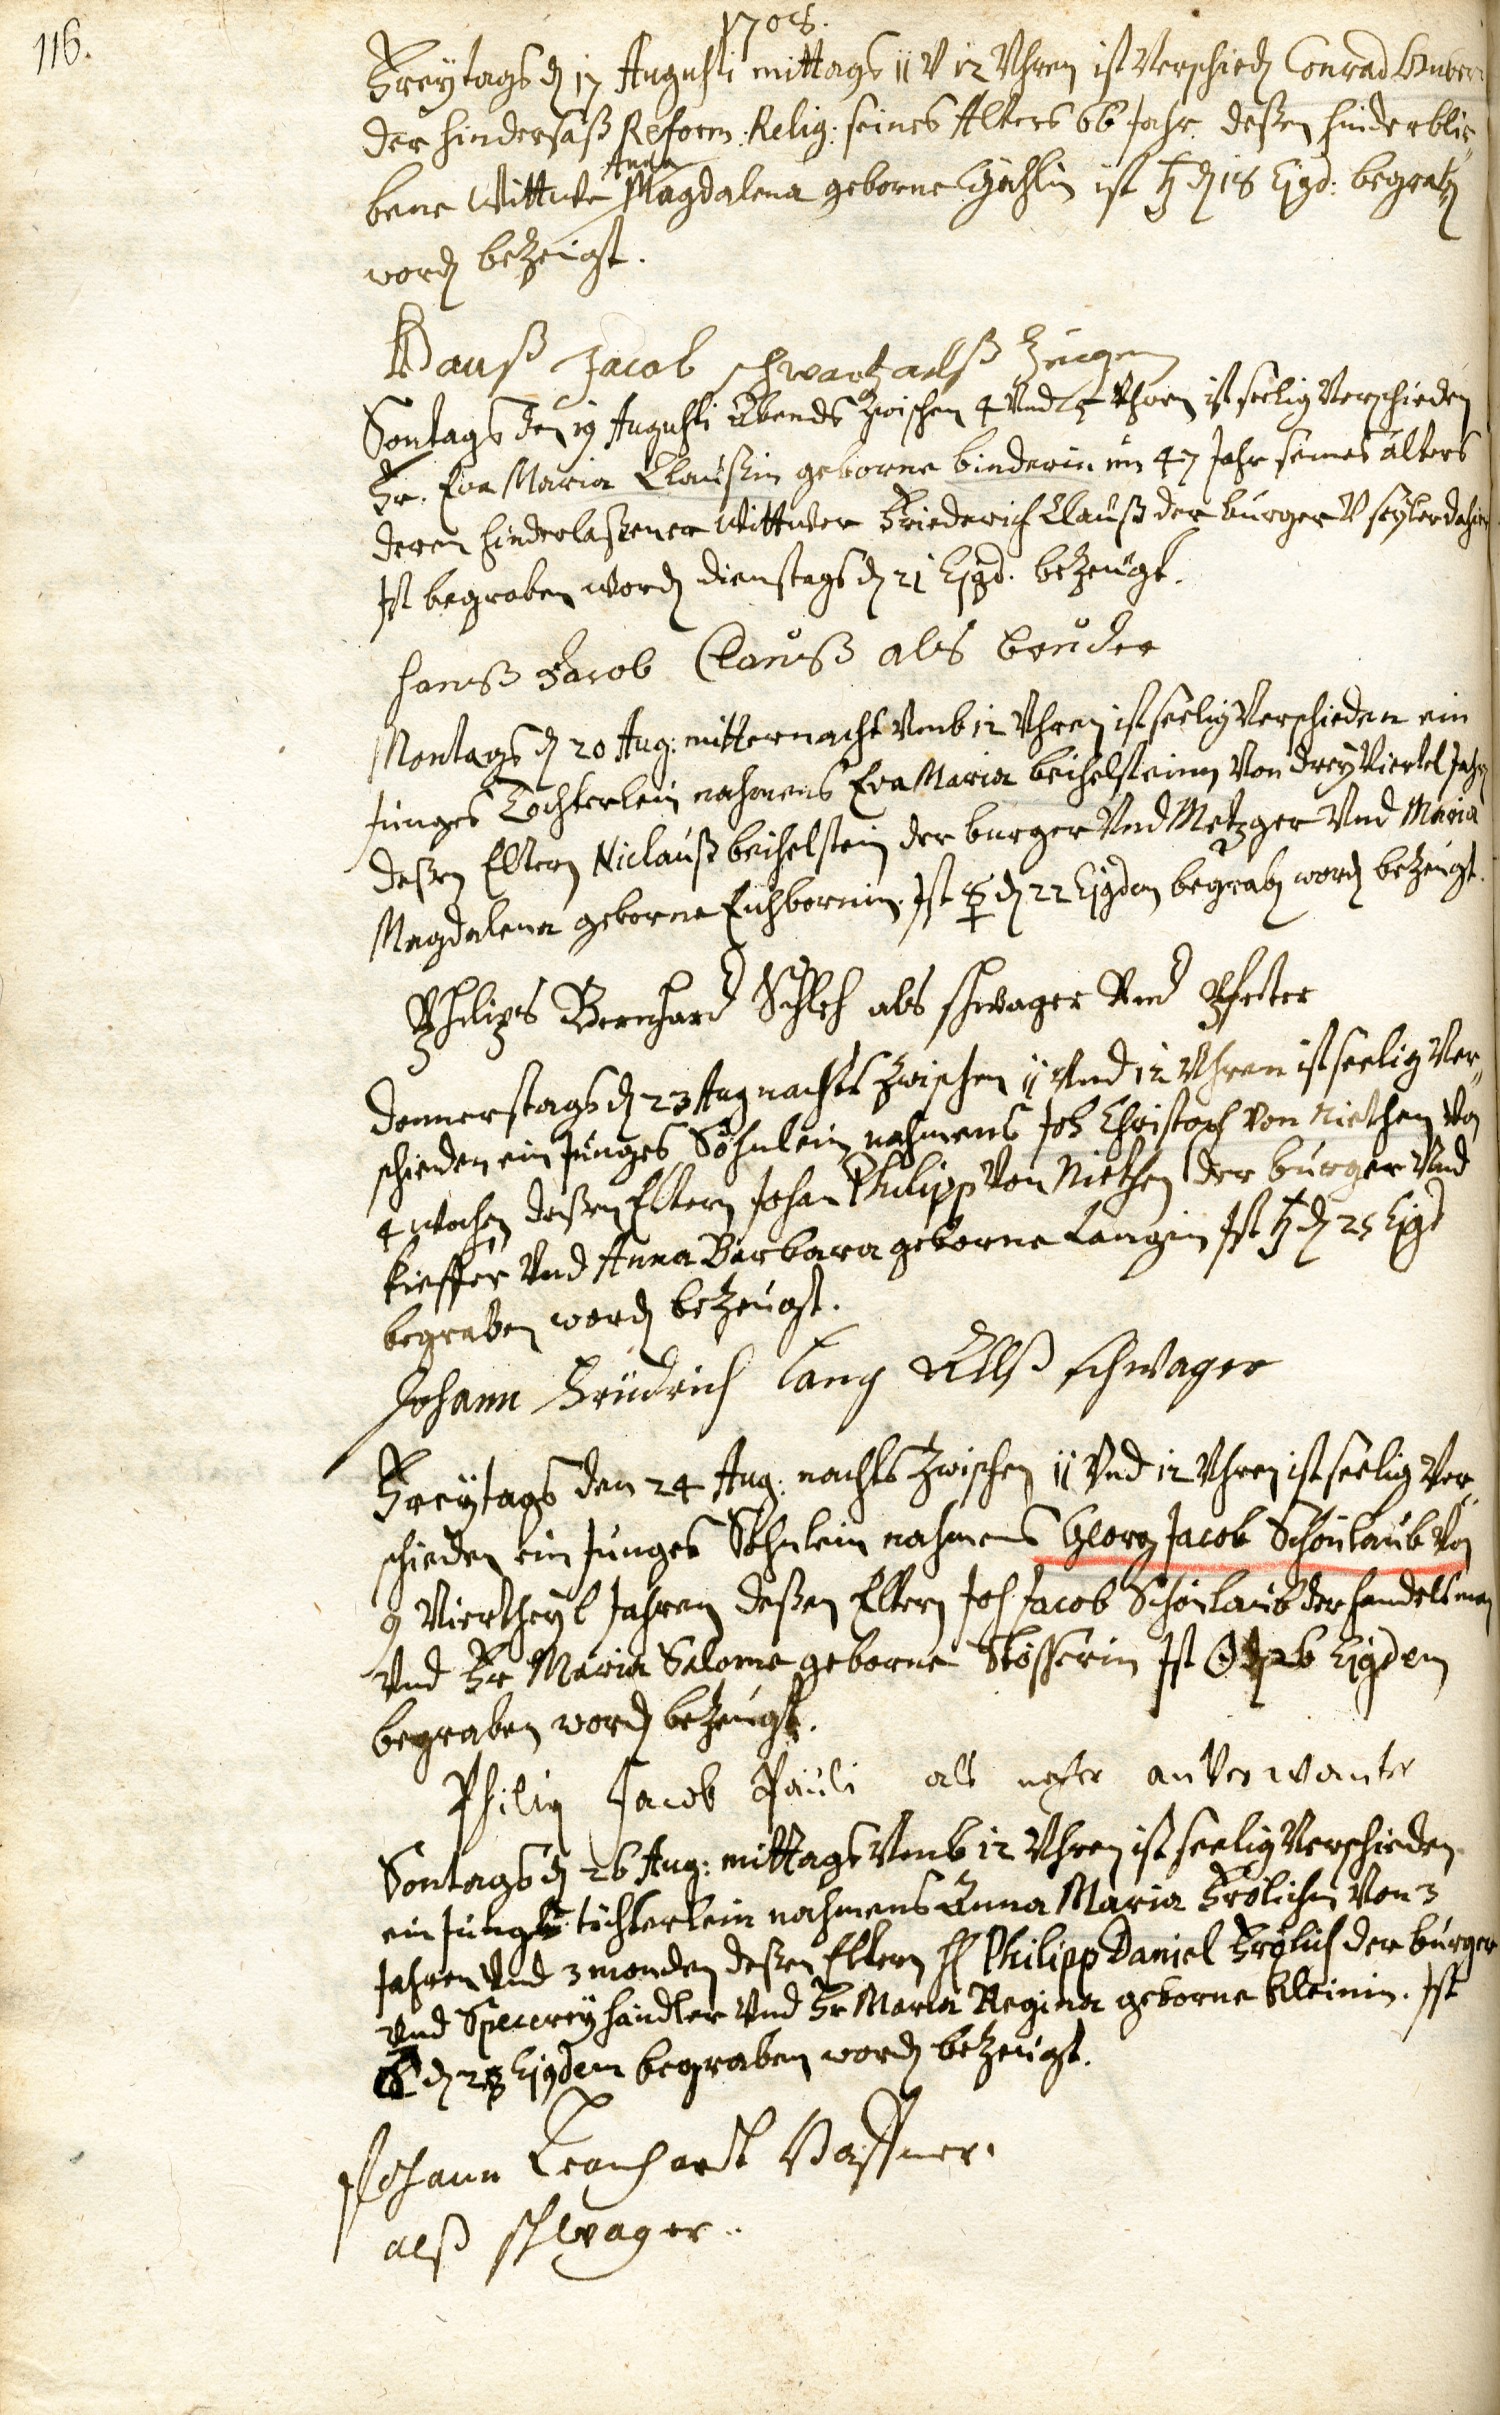 116.
1708.
Freytags den 17 Augusti mittags 11 V 12 Uhren ist verschieden Conrad
der hindersaß Reform. Relig: seines Alters 66 Jahr. deßen hinderblie„
Anna
bene Wittwe Magdalena geborne ist ♄ den 18 Ejgd: begraben
worden bezeugt.
Hanß Jacob schwartz alß Zeugen
Sontags den 19 Augusti Abends zwischen 4 Und 5 Uhren ist seelig Verschieden
Fr. Eva Maria Claußin geborne binderin im 47 Jahr seines alters
deren hinderlaßener Wittwer Friederich Clauß der burger V seyler dahier
Ist begraben worden dienstags den 21 Ejgd. bezeugt.
hanß Jacob Clauß als bruder
Montags den 20 Aug: mitternacht Umb 12 Uhren ist seelig Verschieden ein
Junges Tochterlein nahmens Eva Maria beihelsteinin Von drey Viertel Jahr
deßen Eltern Niclauß beihelstein der burger Und Metzger Und Maria
Magdalena geborne Eichbornin. Ist ☿ den 22 Ejgdem begraben worden bezeugt.
Philips Bernhard Schleh als schwager Und Pfetter
Donnerstags den 23 Aug nachts zwischen 11 Und 12 Uhren ist seelig Ver„
schieden ein Junges Söhnlein nahmens Joh Christoph Von Niethen Von
4 wochen deßen Eltern Johan Philipp Von Niethen der burger Und
kieffer Und Anna Barbara geborne Langin Ist ♄ den 25 Ejgd
begraben worden bezeugt.
Johann Fridrich Lang Allß schwager
Freytags den 24 Aug: nachts zwischen 11 Und 12 Uhren ist seelig Ver„
schieden ein Junges Söhnlein nahmens Georg Jacob Schönlaub Von
9 Viertheyl Jahren deßen Eltern Joh Jacob Schönlaub der handelsman
Und Fr Maria Salome geborne Stösserin Ist ☉ den 26 Ejgdem
begraben worden bezeugt.
Philip Jacob Pauli als anverwanter
Sontags den 26 Aug: mittags Umb 12 Uhren ist seelig Verschieden
ein Junges töchterlein nahmens Anna Maria Frölichin Von 3
Jahren Und 3 monden deßen Eltern H Philipp Daniel Frölich der burger
Und Specereyhändler Und Fr Maria Regina geborne Kleinin. Ist
den 28 Ejgdem begraben worden bezeugt.
Johann Leonhardt
alß schwager..